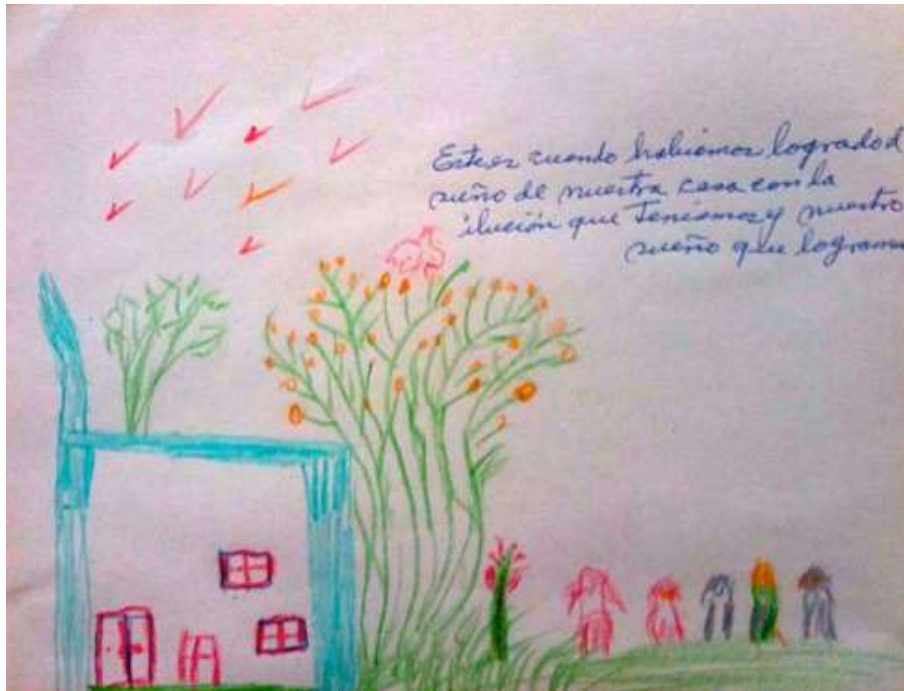 Este es cuando habiamos logrado el
sueño de nuestra casa con la
ilución que Teniamos y nuestro
sueño que logramos